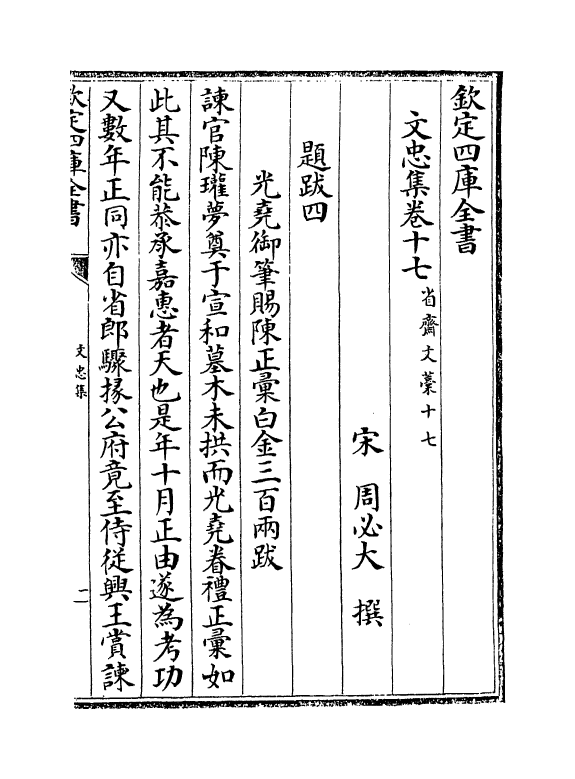 欽定四庫全書
文忠集卷十七 省齋文藁十七
宋 周必大 撰
題跋四
光堯御筆賜陳正彙白金三百兩跋
諫官陳瓘夢奠于宣和墓木未拱而光堯眷禮正彙如
此其不能恭承嘉惠者天也是年十月正由遂為考功
又數年正同亦自省郎驟掾公府竟至侍從興王賞諫
欽定四庫全書
文忠集
二